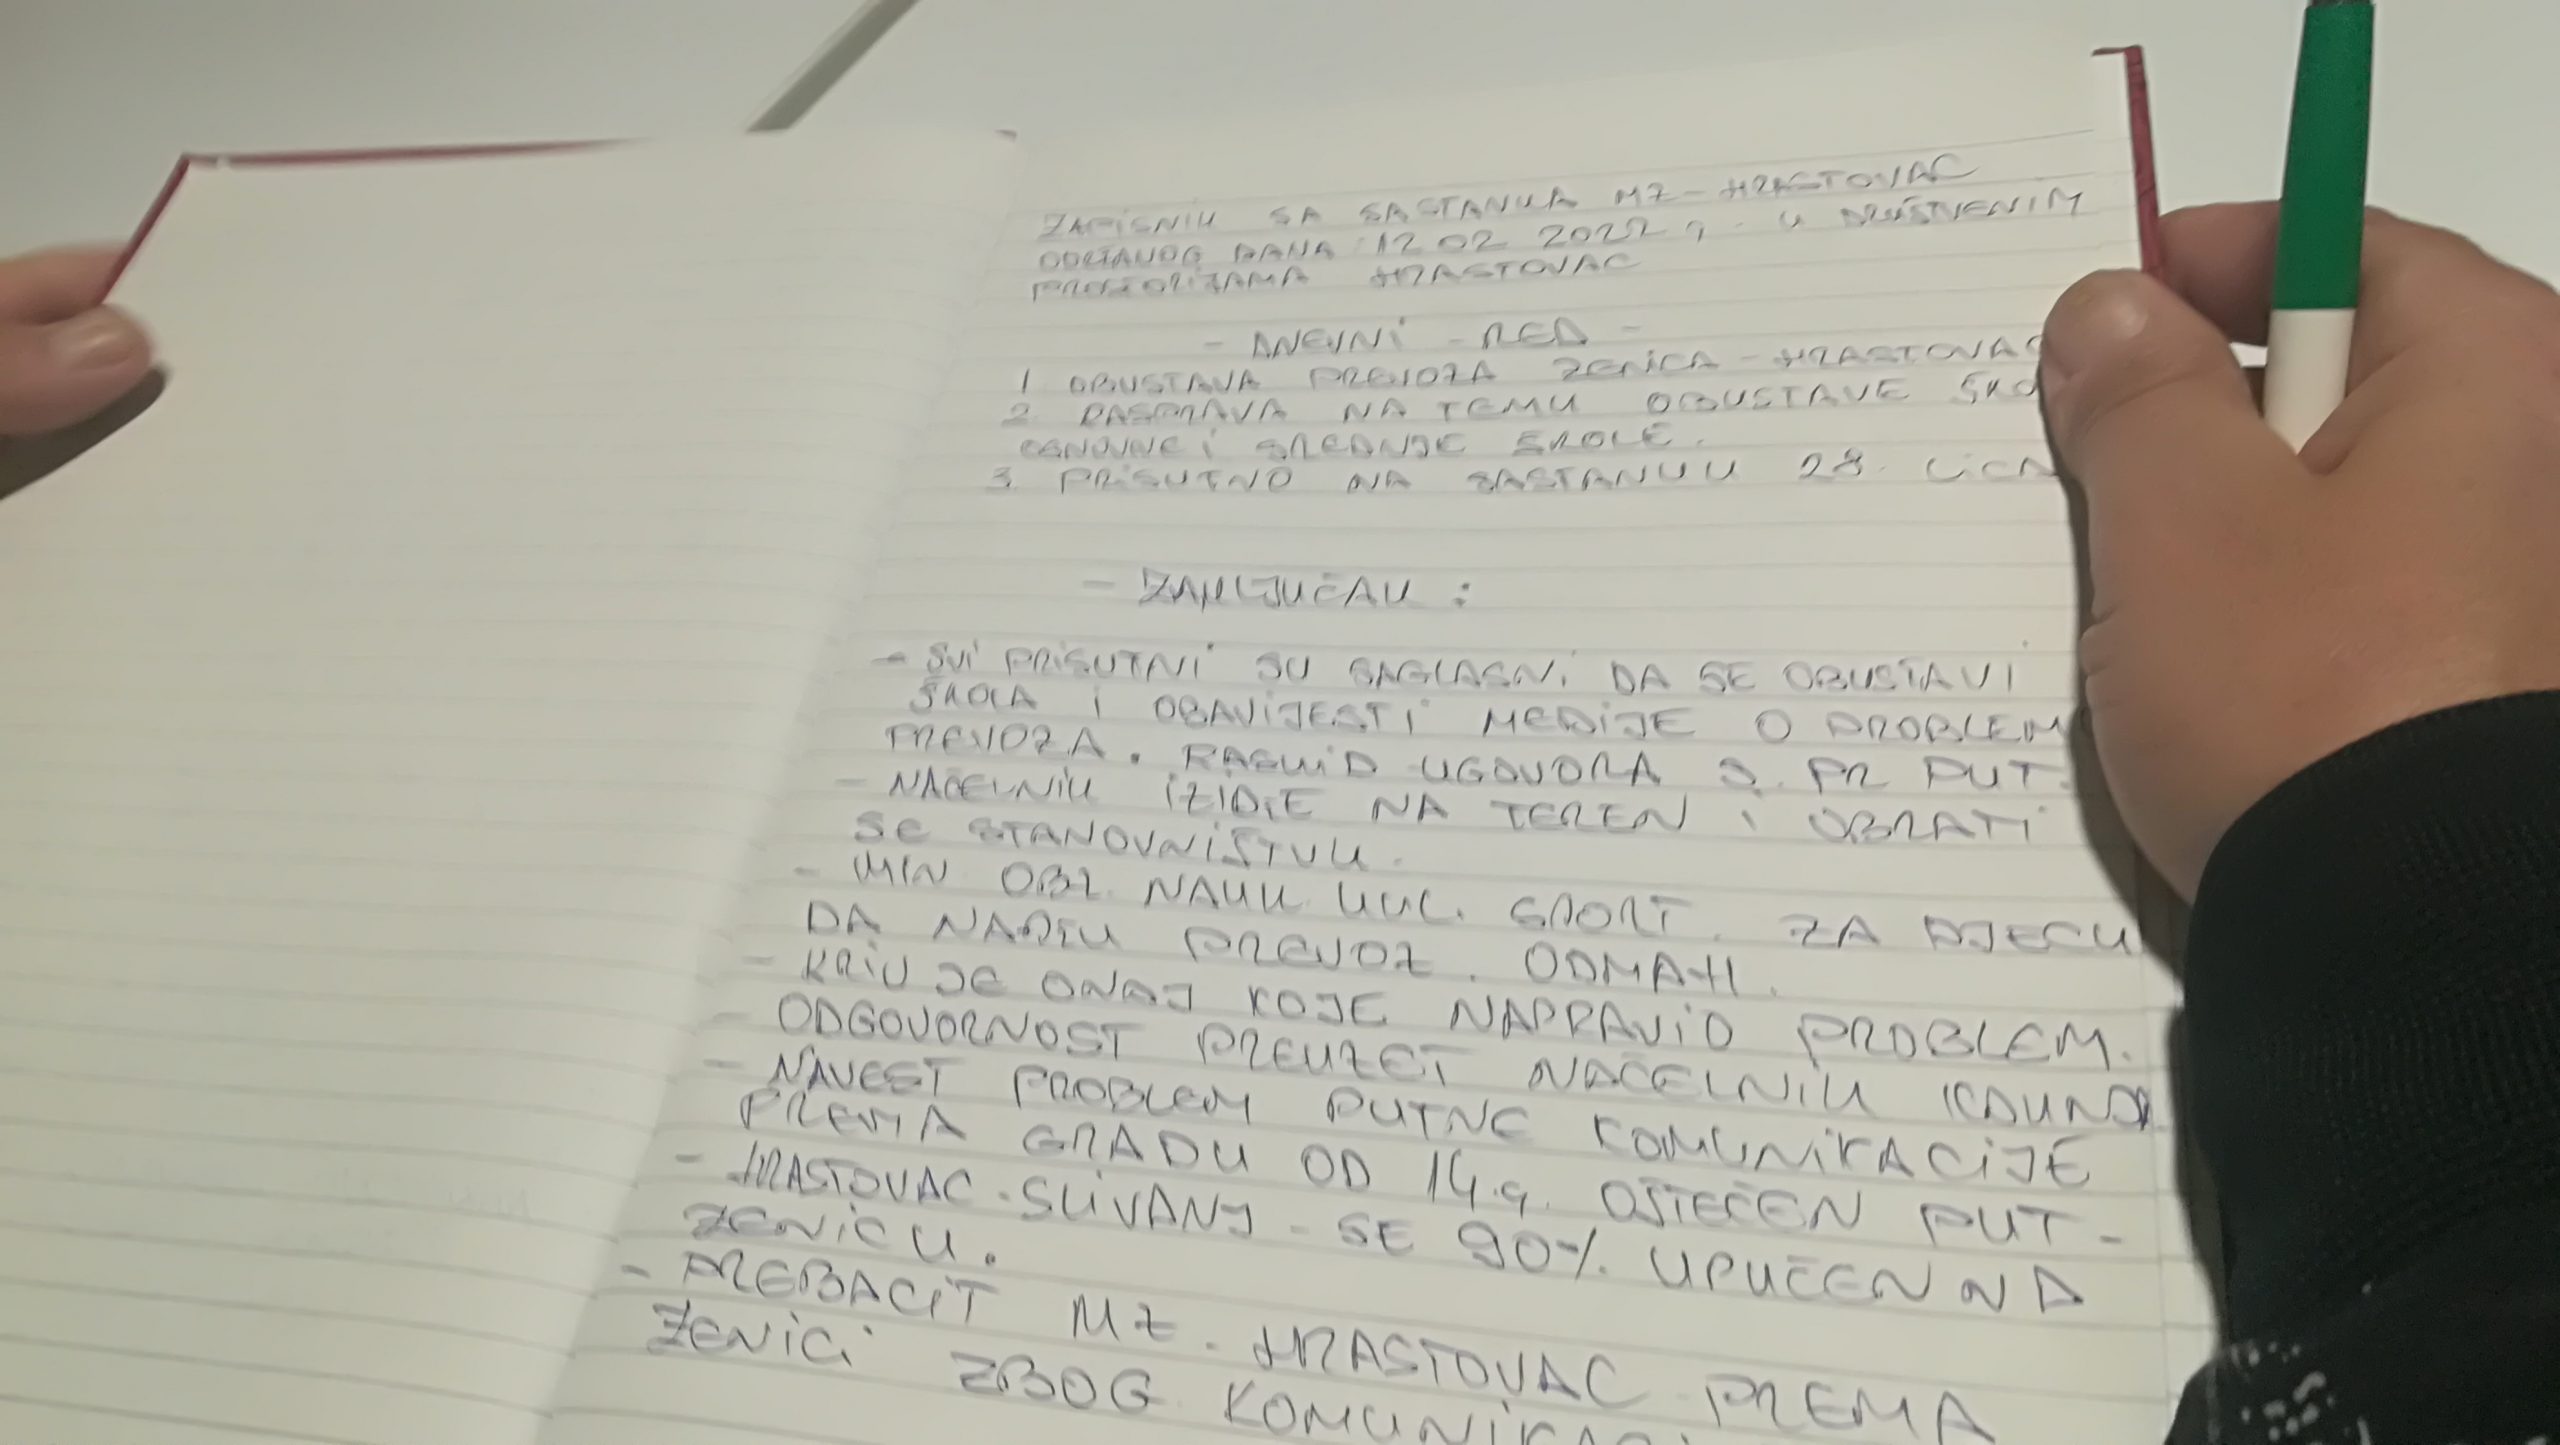 ZAPISNIK SA SASTANKA MZ - HRASTOVAC
ODRŽANOG DANA 12 02 2022 g. U DRUŠTVENIM
PROSTORIJAMA HRASTOVAC
- DNEVNI - RED -
1 OBUSTAVA PREVOZA ZENICA - HRASTOVAC
2. RASPRAVA NA TEMU OBUSTAVE ŠKO
OSNOVNE I SREDNJE ŠKOLE.
3. PRISUTNO NA SASTANKU 28. LICA
- ZAKLJUČAK :
- SVI PRISUTNI SU SAGLASNI DA SE OBUSTAVI
ŠKOLA I OBAVIJESTI MEDIJE O PROBLEM
PREVOZA. RASKID UGOVORA S. PR PUT.
- NAČELNIK IZIĐE NA TEREN I OBRATI
SE STANOVNIŠTVU.
- MIN OBZ. NAUK. KUL. SPORT. ZA DJECU
DA NAĐU PREVOZ. ODMAH.
- KRIV JE ONAJ KOJE NAPRAVIO PROBLEM.
- ODGOVORNOST PREUZET NAČELNIK
- NAVEST PROBLEM PUTNE KOMUNIKACIJE
PREMA GRADU OD 14.g. OŠTEĆEN PUT -
- HRASTOVAC - SLIVANJ - SE 90% UPUĆEN NA
ZENICU.
- PREBACIT MZ. HRASTOVAC PREMA
ZENICI ZBOG KOMUNIKACI